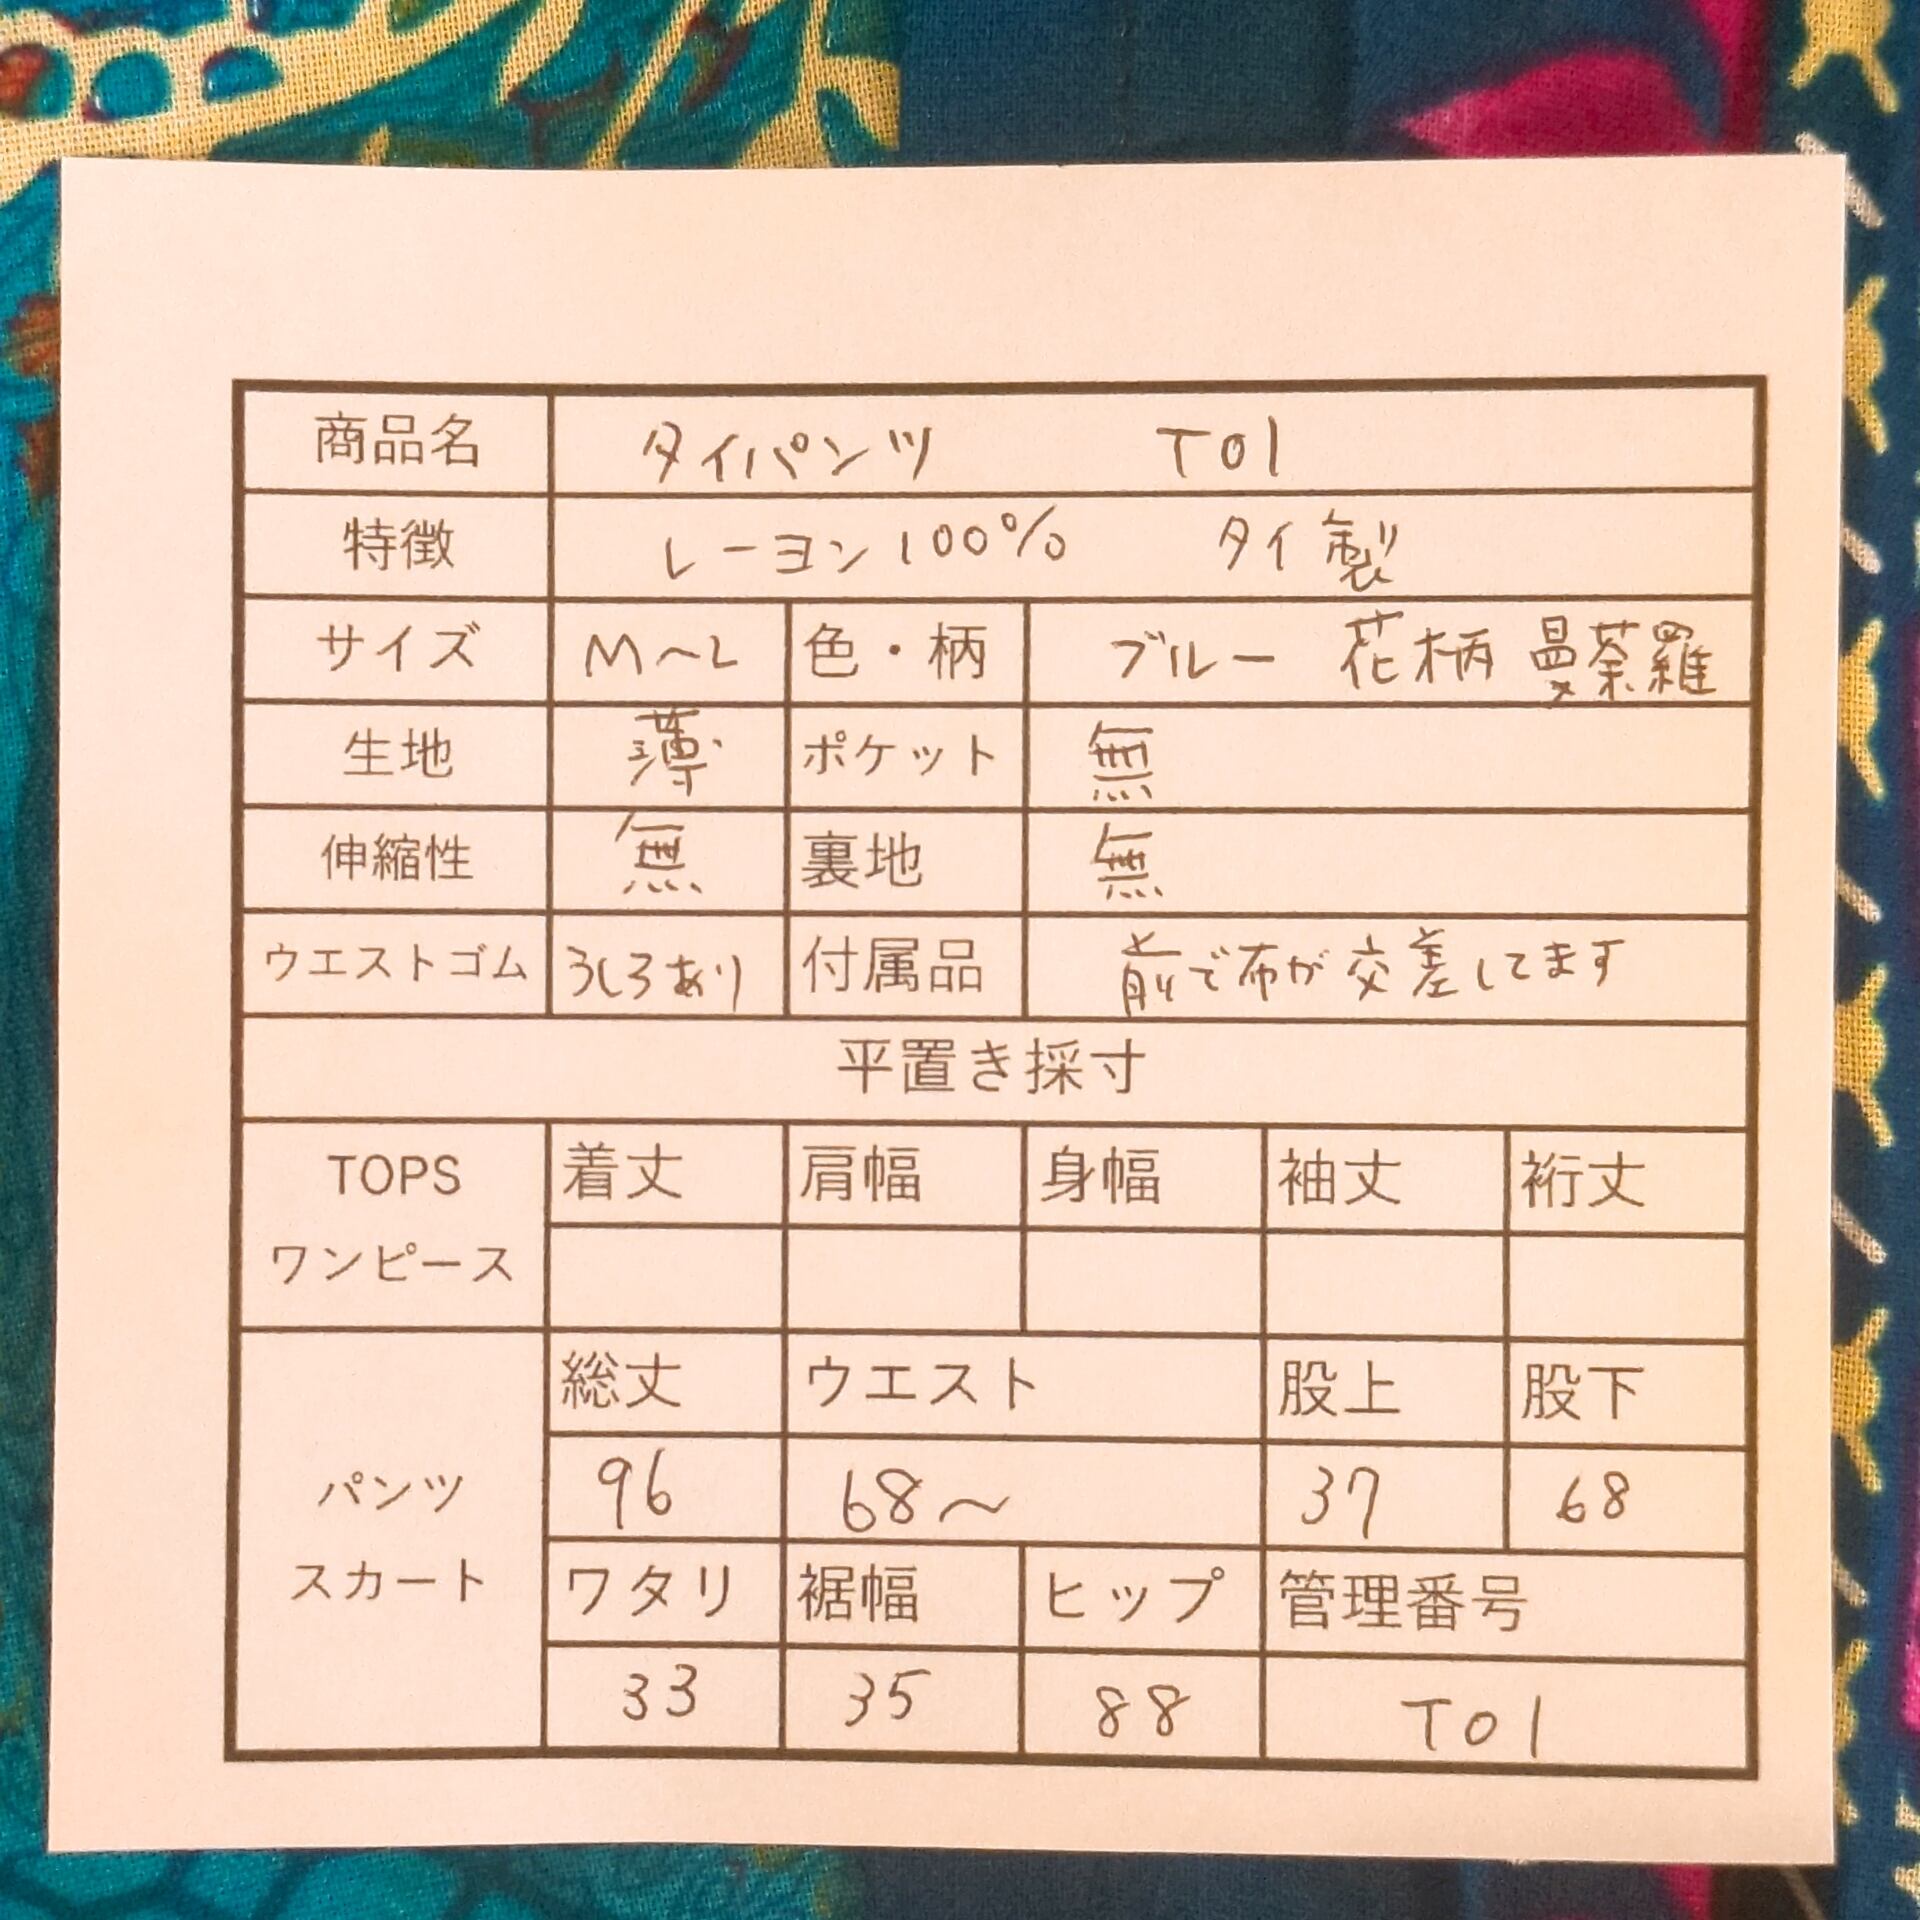 商品名 タイパンツ T01
特徴 レーヨン100% タイ製
サイズ M～L 色・柄 ブルー 花柄 曼荼羅
生地 薄 ポケット 無
伸縮性 無 裏地 無
ウエストゴム うしろあり 付属品 前で布が交差してます
平置き採寸
TOPS ワンピース 着丈 肩幅 身幅 袖丈 裄丈
パンツ スカート 総丈 ウエスト 股上 股下
96 68～ 37 68
ワタリ 裾幅 ヒップ 管理番号
33 35 88 T01